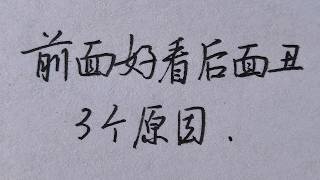 前面好看后面丑
3个原因.